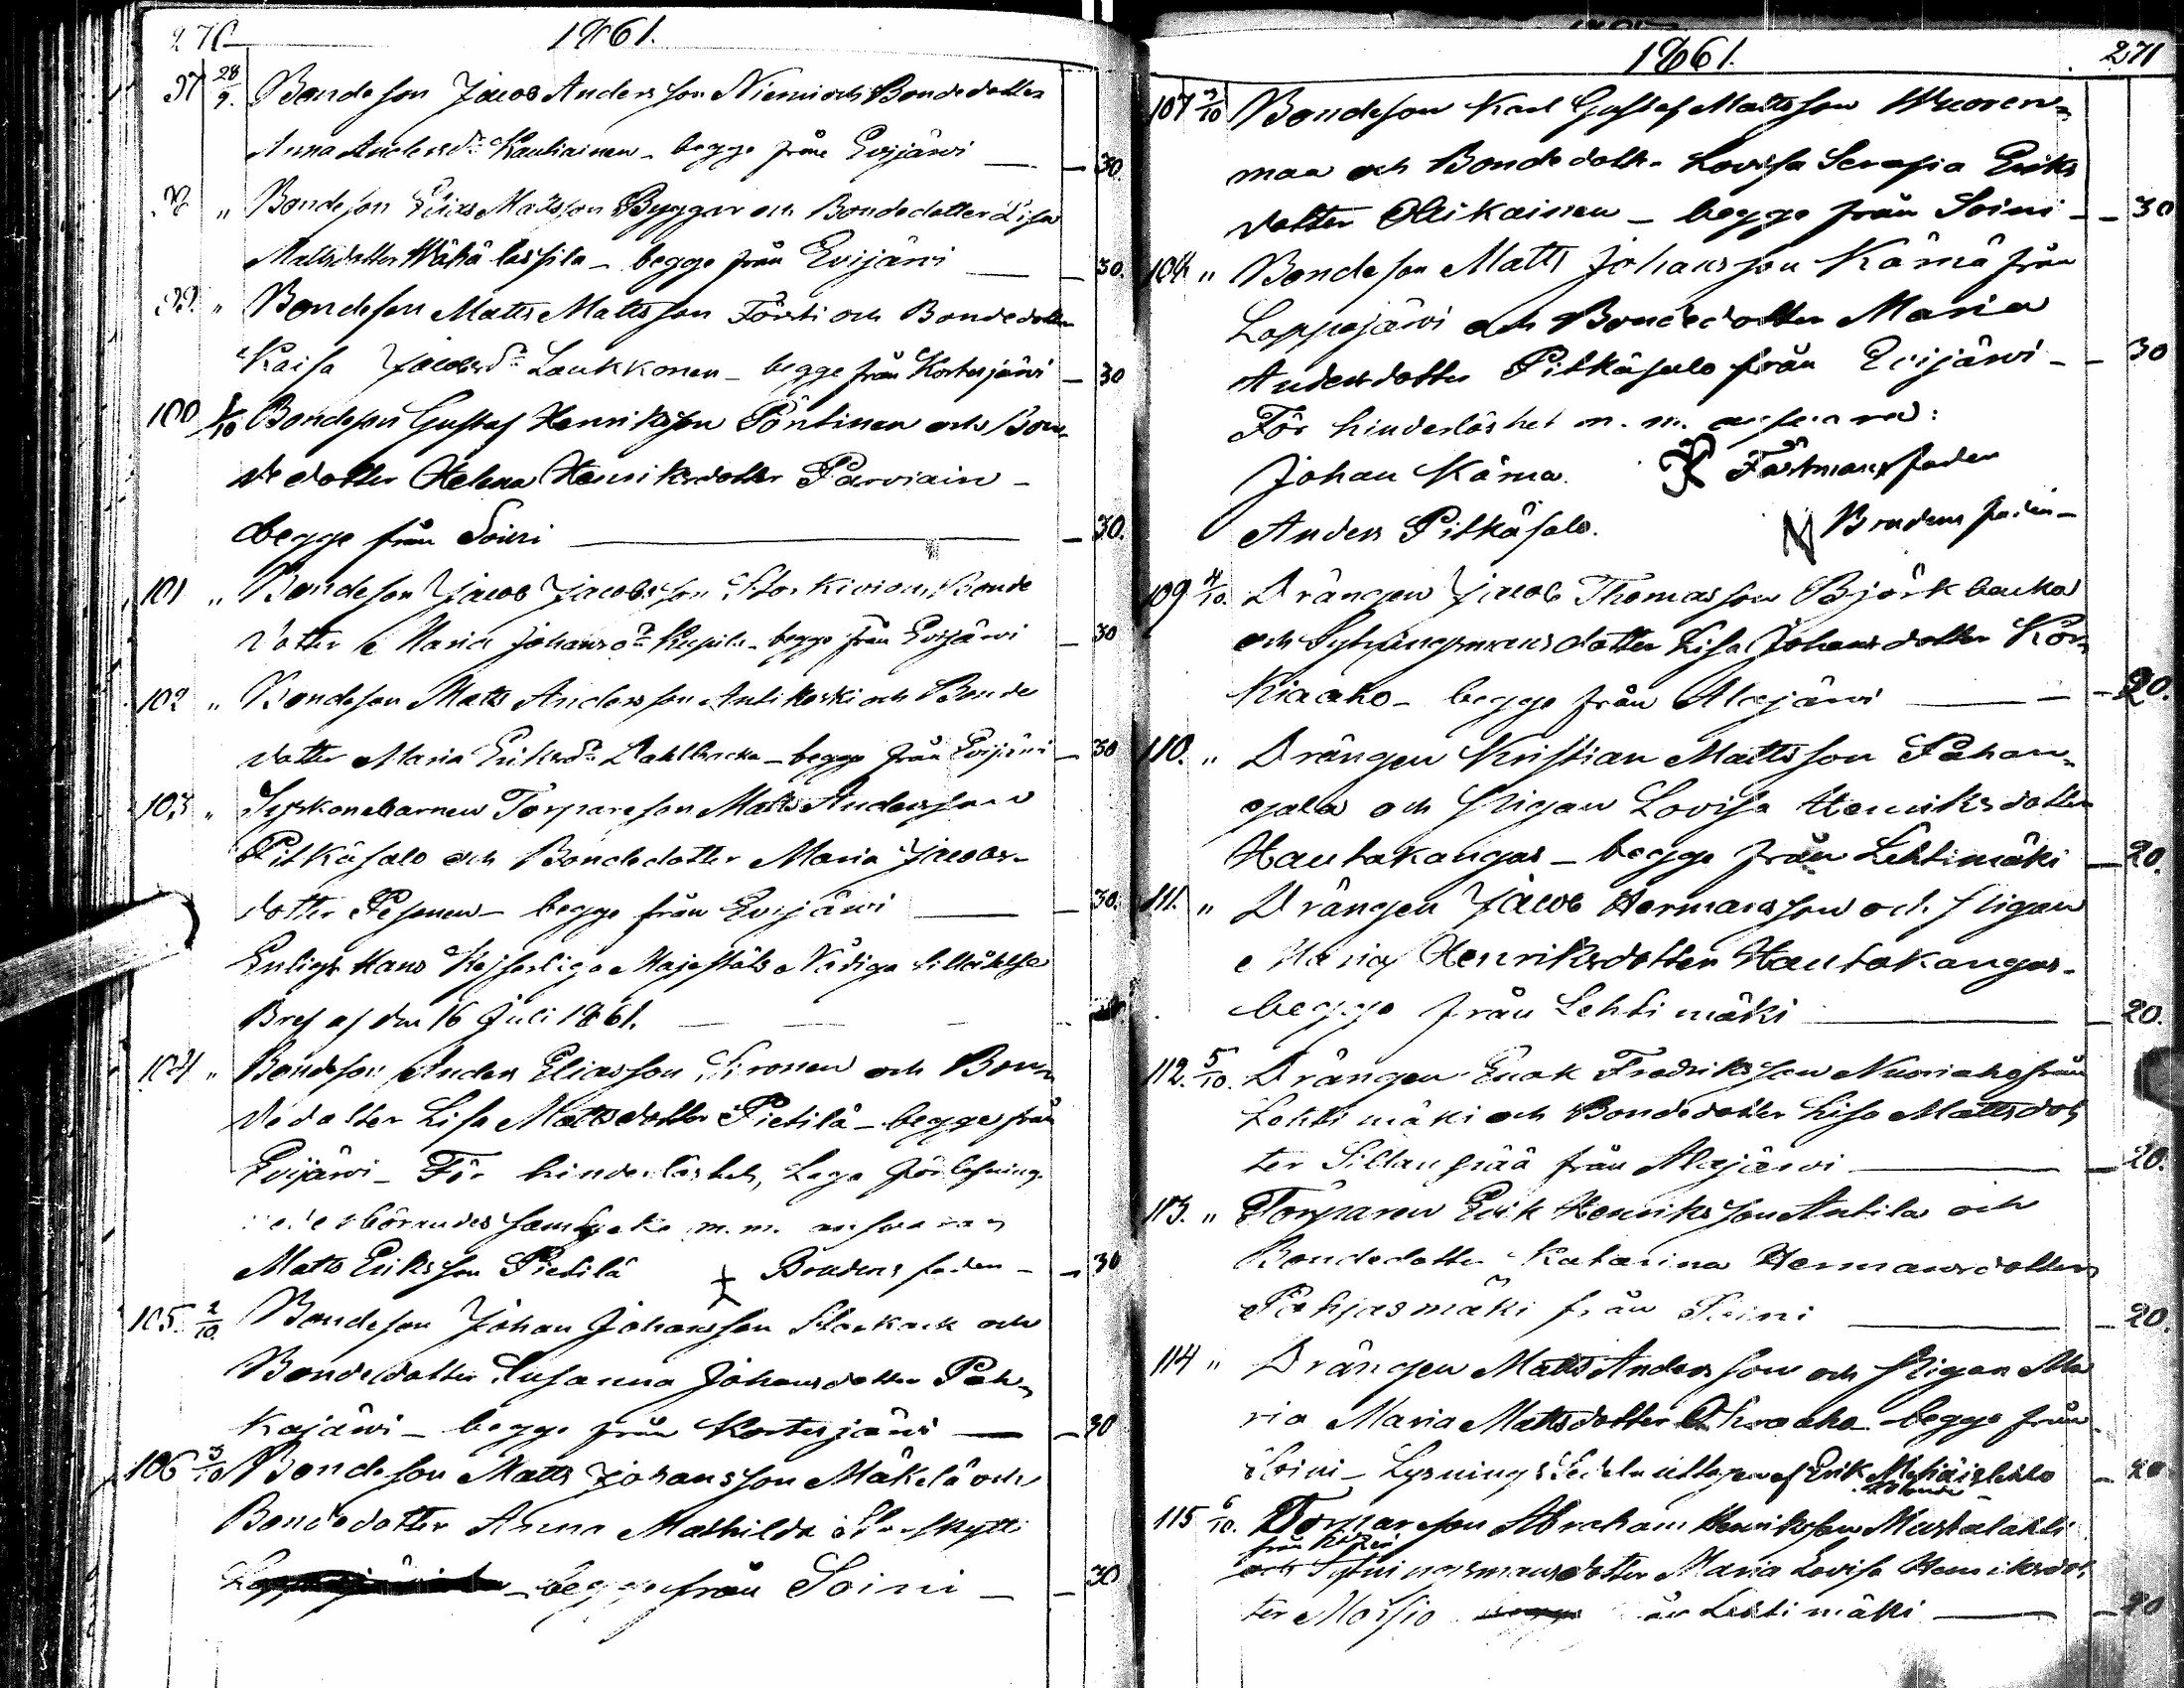 270 1861.
97 28/9. Bondeson Jacob Andersson Niemi och Bondedotter
Anna Andersdr Kauhainen - begge från Evijärvi — 30.
98 " Bondeson Elias Mattsson Byggar och Bondedotter Lisa
Mattsdotter Wähä lassila - begge från Evijärvi — 30.
99. " Bondeson Matts Mattsson Försti och Bondedotter
Kaisa Jacobsdr Laukkonen - begge från Kortesjärvi — 30
100 1/10 Bondeson Gustaf Henriksson Pöntinen och Bon-
dedotter Helena Henriksdotter Parviain -
begge från Soini — 30.
101 " Bondeson Jacob Jacobsson Storkivi och Bonde
dotter Maria Johansdr - begge från Evijärvi — 30
102 " Bondeson Matts Andersson Antikoski och Bonde
dotter Maria Eriksdr Dahlbacka - begge från Evijärvi — 30
103 " Syskonebarnen Torpareson Matts Andersson
Pitkäsalo och Bondedotter Maria Jacobs-
dotter Pesonen - begge från Evijärvi — 30.
Enligt Hans Kejserliga Majestäts Nådiga tillåtelse
Bref af den 16 Juli 1861.
104 " Bondeson Anders Eliasson Sironen och Bon-
dedotter Lisa Mattsdotter Pietilä - begge från
Evijärvi - För hinderlöshet, Laga förlofning
vederbörandes samtycke m.m. ansvarar
Matts Eriksson Pietilä Brudens fader - 30
105. 2/10. Bondeson Johan Johansson Storkack och
Bondedotter Susanna Johansdotter Pah-
kajärvi - begge från Kortesjärvi — 30
106 3/10 Bondeson Matts Johansson Mäkelä och
Bondedotter Anna Mathilda
- begge från Soini — 30
1861. 271
107 3/10 Bondeson Karl Gustaf Mattsson Wuoren-
maa och Bondedottr Lovisa Serafia Eriks
dotter Ollikainen - begge från Soini — 30
108 " Bondeson Matts Johansson Kärnä från
Lappajärvi och Bondedotter Maria
Andersdotter Pitkäsalo från Evijärvi — 30
För hinderlöshet m. m. ansvara:
Johan Kärnä. Fästmans fader
Anders Pitkäsalo. Brudens fader -
109 4/10. Drängen Jacob Thomasson Björkbacka
och Sytningsmansdotter Lisa Johansdotter Kor-
kiaaho - begge från Alajärvi — 20.
110. " Drängen Kristian Mattsson Pahan-
gala och Pigan Lovisa Henriksdotter
Hautakangas - begge från Lehtimäki — 20.
111. " Drängen Jacob Hermansson och Pigan
Maria Henriksdotter Hautakangas -
begge från Lehtimäki — 20.
112. 5/10. Drängen Enok Fredriksson Nurniaho från
Lehtimäki och Bondedotter Lisa Mattsdot
ter Sillanpää från Alajärvi — 20.
113. " Torparen Erik Henriksson Antila och
Bondedotter Katarina Hermansdotter
Pohjasmäki från Soini — 20.
114 " Drängen Matts Andersson och Pigan Ma
ria Maria Mattsdotter - begge från
Soini - Lysnings Sedeln uttagen af Erik — 20
115 6/10. Torpareson Abraham Henriksson Mustalahti
från
och Sytningsmansdotter Maria Lovisa Henriksdot
ter Moisio från Lehtimäki — 20